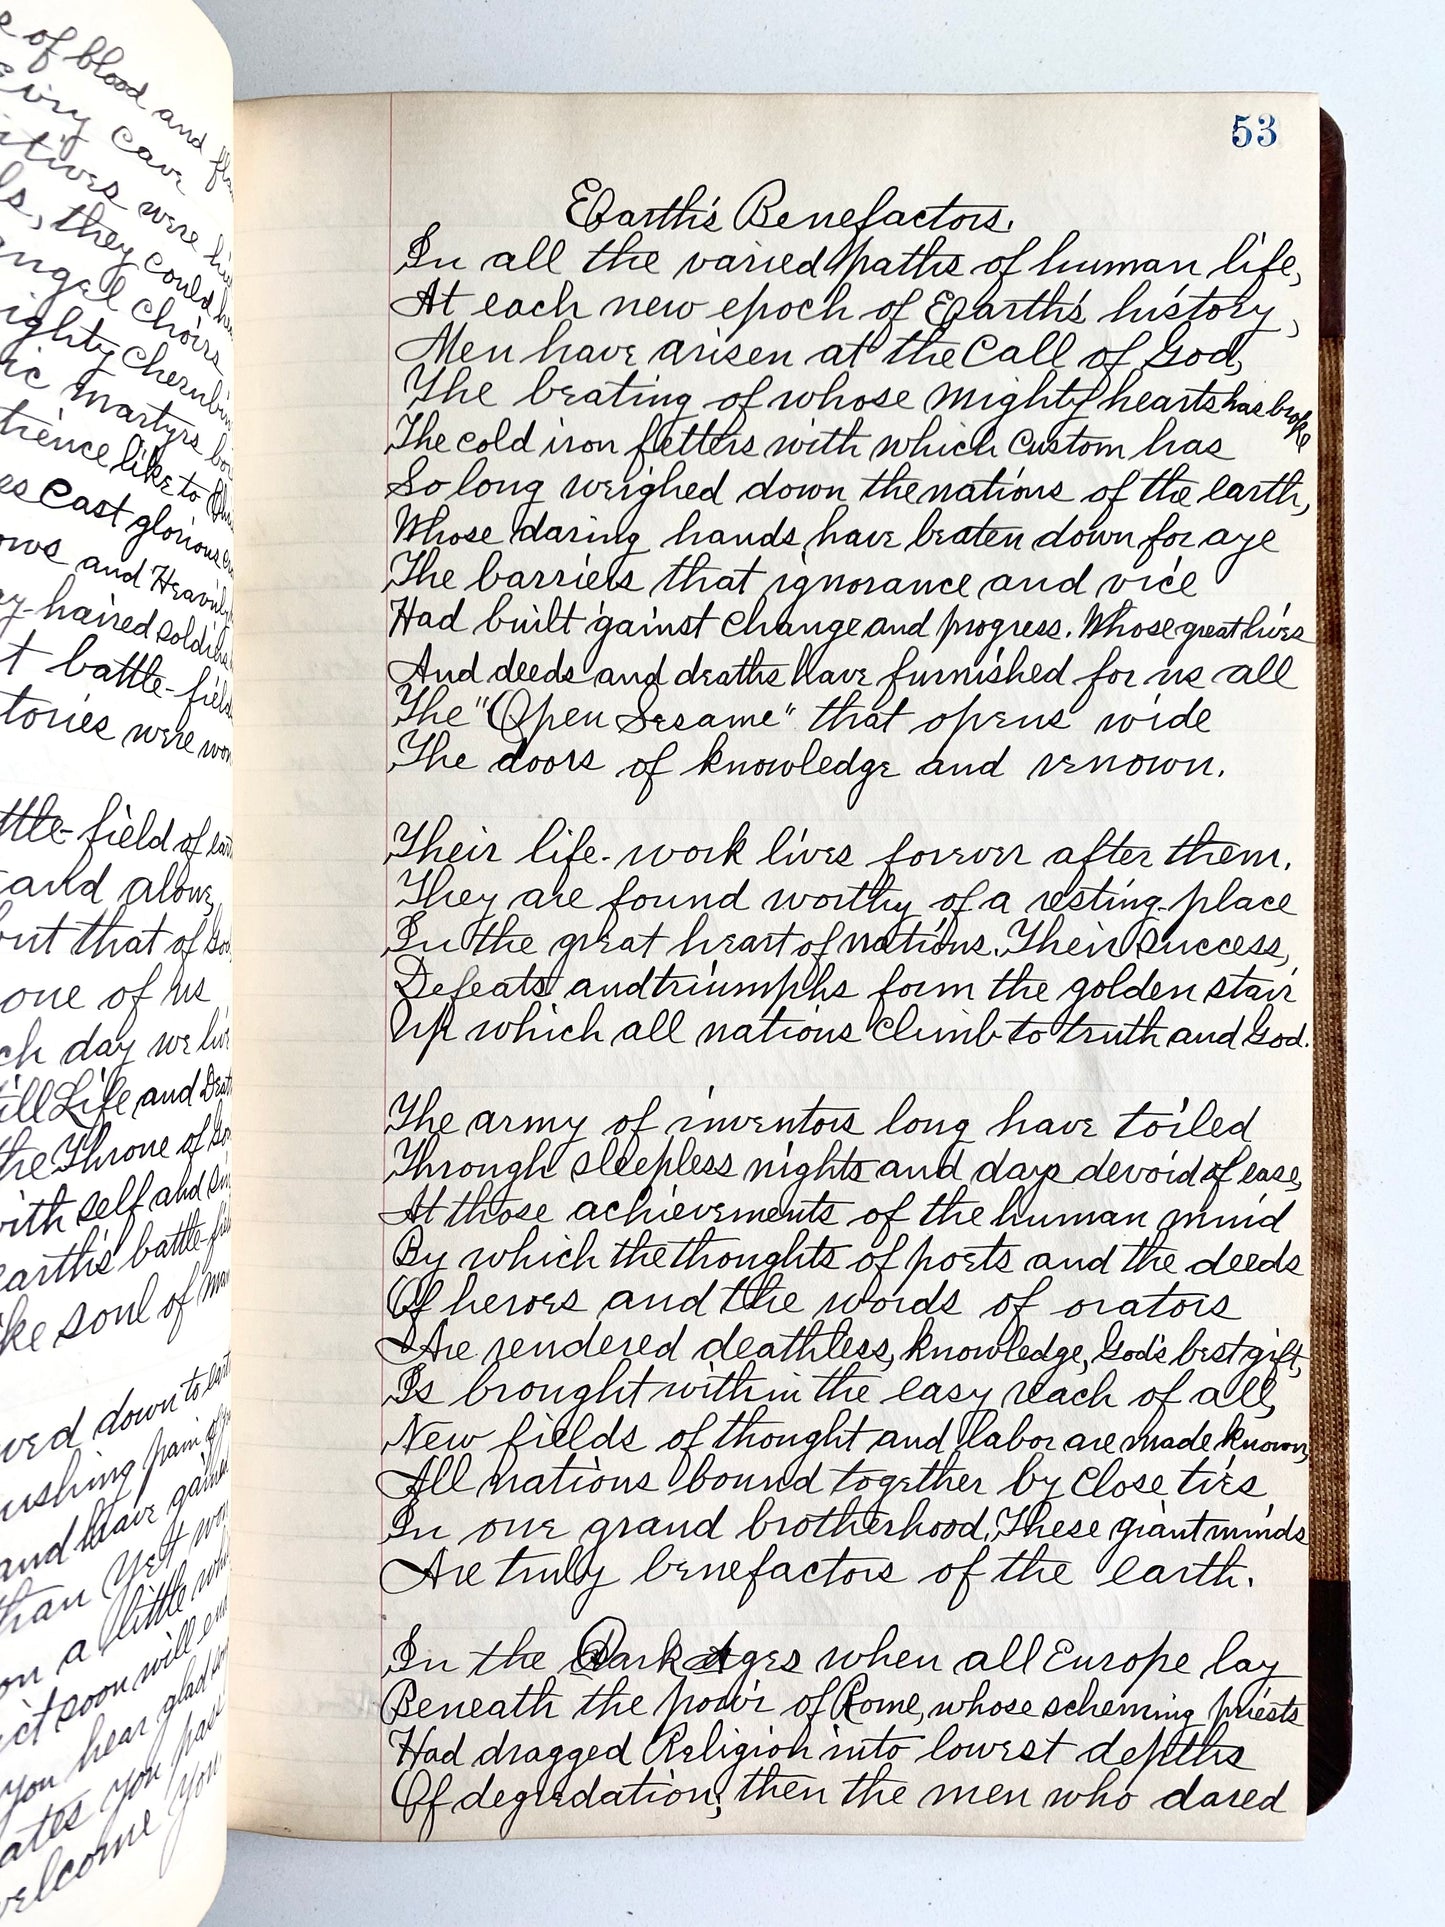 e of blood and
cave
were
ls, they could
angel choirs
mighty cherubim
ic martyrs
tience like to
es cast glorious
ows and Heavenly
y haired soldiers
t battle-field
tories were won
ttle-field of
and alone,
but that of God
one of us
ch day we live
till Life and Death
the Throne of God
with self and sin
earth's battle-field
ke soul of
wed down to
ushing pain of
and have gained
than yet
on a little while
ct soon will end
you hear glad
ates you pass
welcome you
53
Earth's Benefactors.
In all the varied paths of human life,
At each new epoch of Earth's history,
Men have arisen at the call of God,
The beating of whose mighty hearts has broke
The cold iron fetters with which custom has
So long weighed down the nations of the earth,
Whose daring hands have beaten down for aye
The barriers that ignorance and vice
Had built 'gainst change and progress. Whose great lives
And deeds and deaths have furnished for us all
The "Open Sesame" that opens wide
The doors of knowledge and renown.
Their life-work lives forever after them.
They are found worthy of a resting-place
In the great heart of nations. Their success,
Defeats and triumphs form the golden stair
Up which all nations climb to truth and God.
The army of inventors long have toiled
Through sleepless nights and days devoid of ease,
At those achievements of the human mind
By which the thoughts of poets and the deeds
Of heroes and the words of orators
Are rendered deathless, knowledge, God's best gift,
Is brought within the easy reach of all,
New fields of thought and labor are made known,
All nations bound together by close ties,
In one grand brotherhood. These giant minds
Are truly benefactors of the earth.
In the Dark Ages when all Europe lay
Beneath the power of Rome, whose scheming priests
Had dragged Religion into lowest depths
Of degredation; then the men who dared